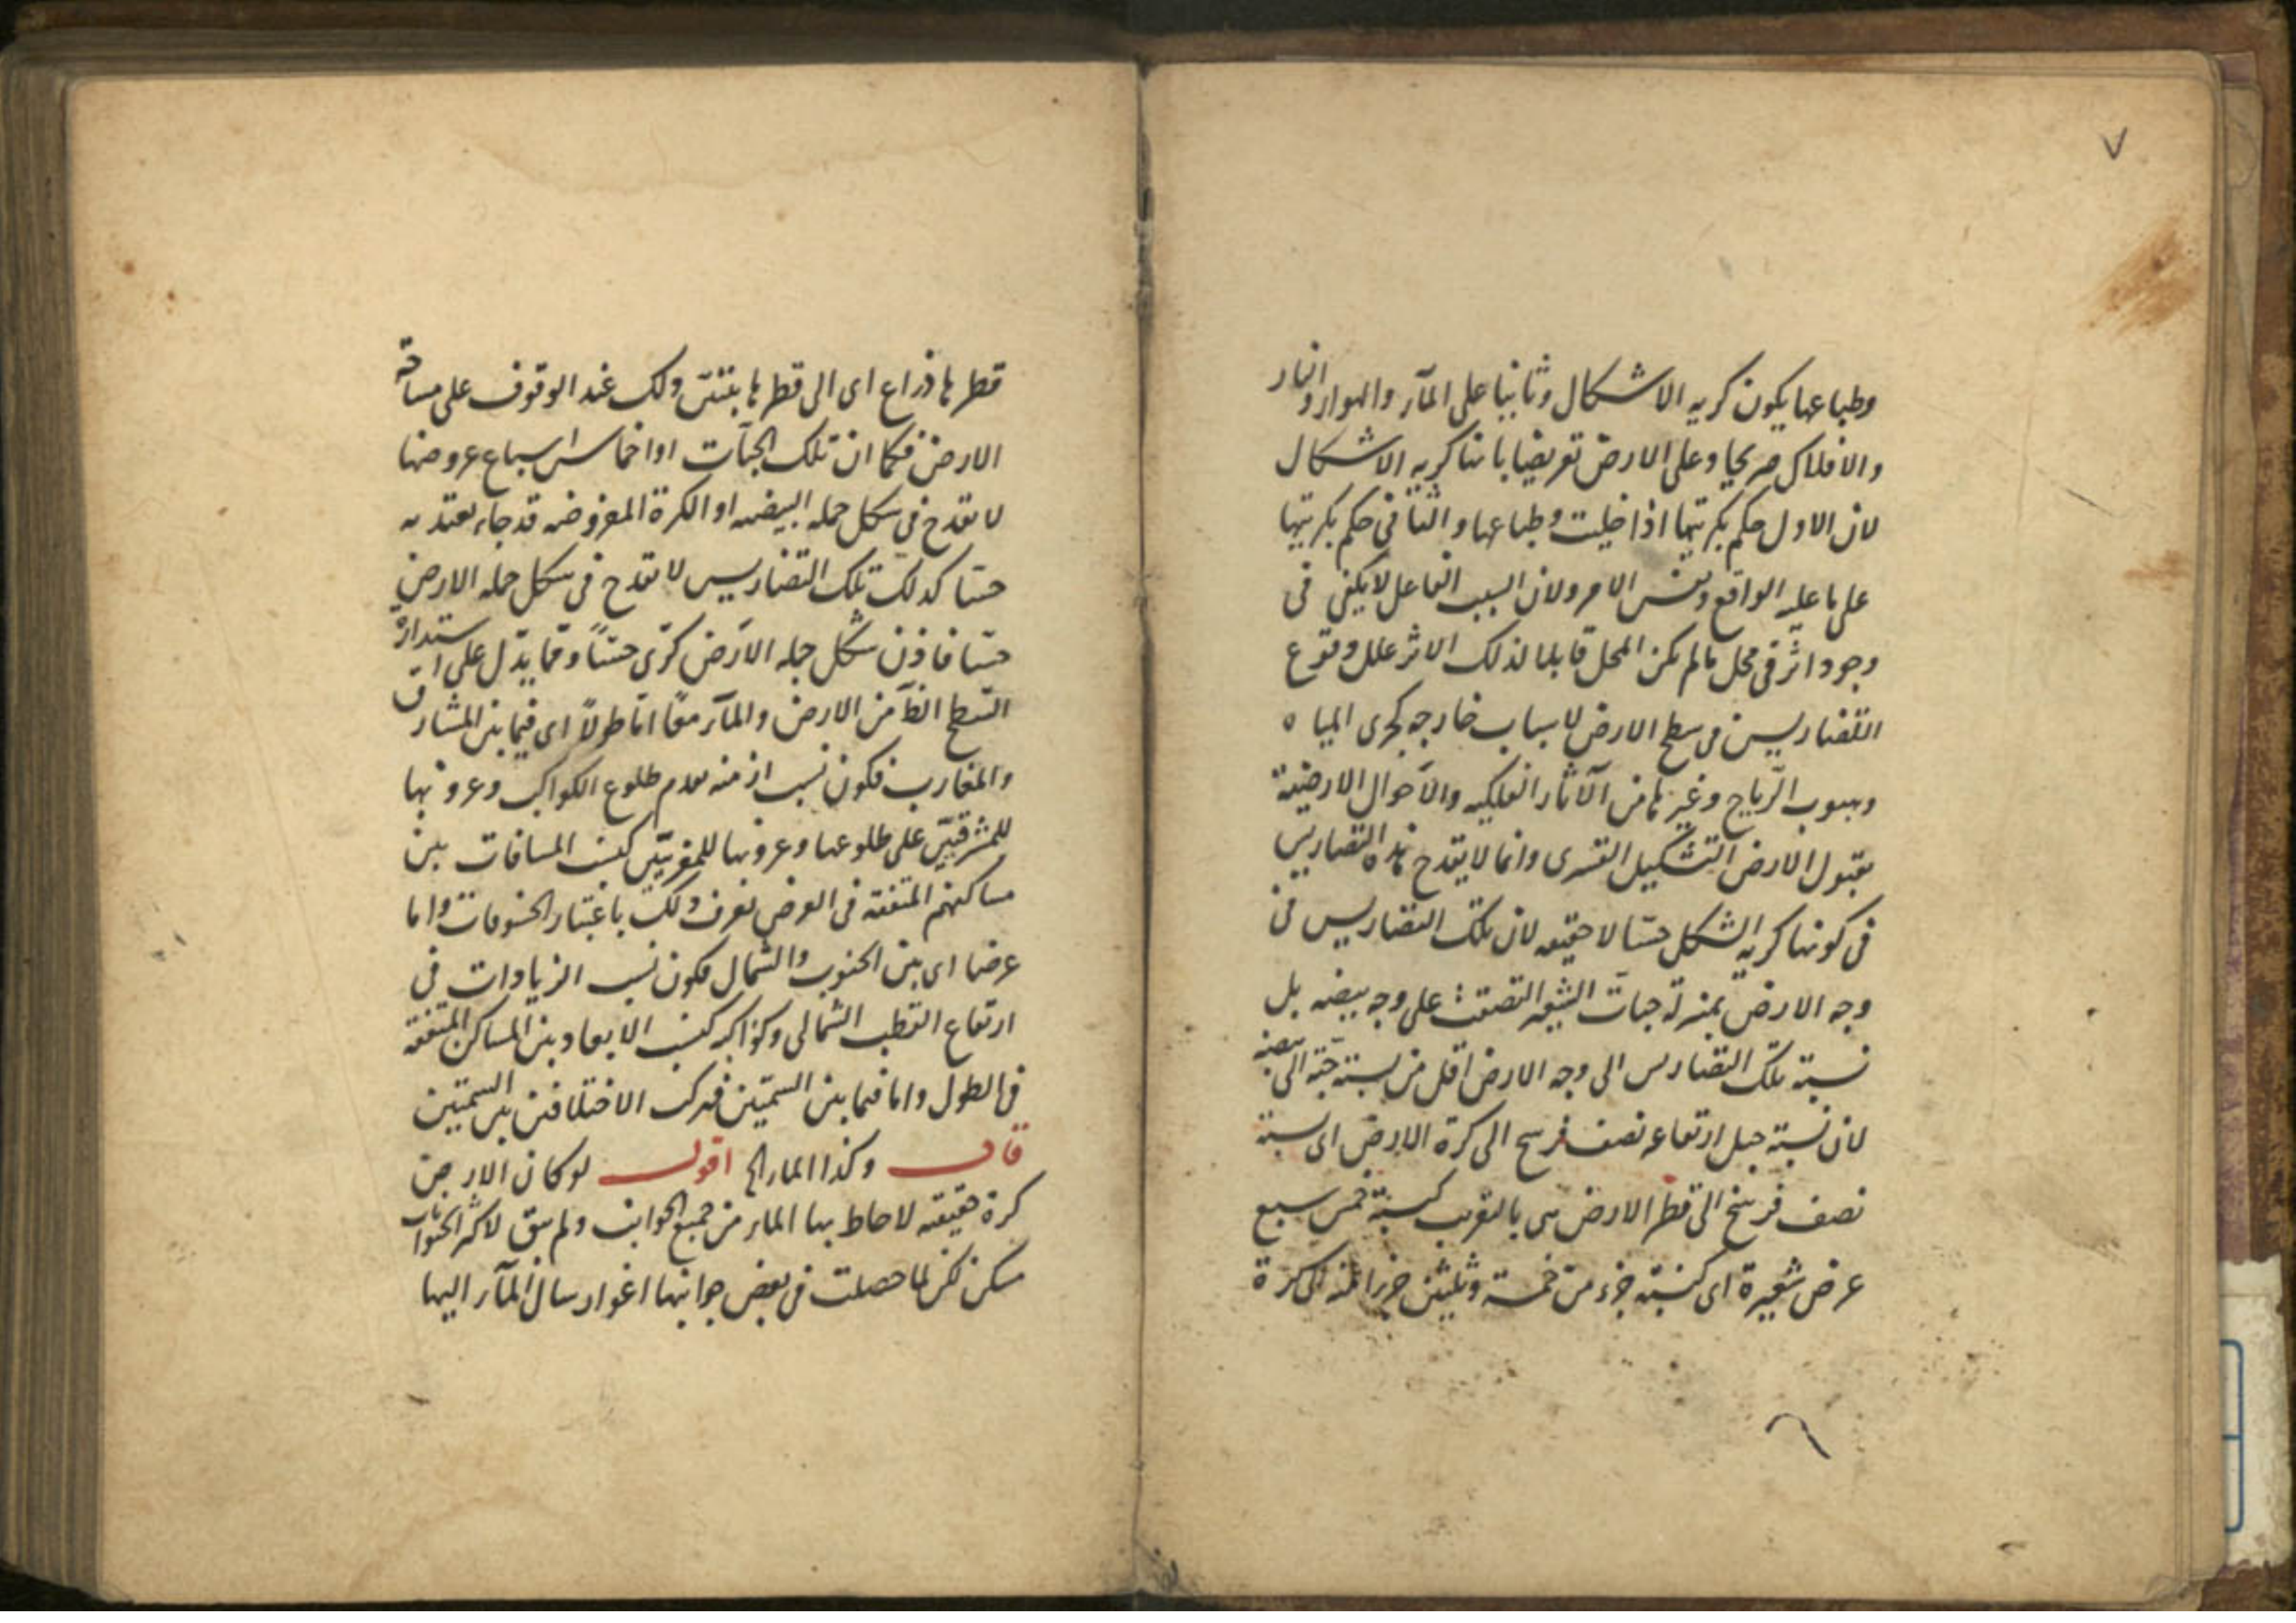 ٧
وطباعها يكون كريه الاشكال وثانيا على المآء والهواء والنار
والافلاك صريحا وعلى الارض تعريضا بانها كريه الاشكال
لان الاول حكم بكريتها اذا خليت وطباعها والثانى حكم بكريتها
على ما عليه الواقع ونفس الامر ولان السبب الفاعل لا يكفى فى
وجود اثر فى محل مالم يكن المحل قابلا لذلك الاثر علل وقوع
التضاريس فى سطح الارض لاسباب خارجه كجرى المياه
وهبوب الرياح وغيرها من الآثار الفلكيه والاحوال الارضية
بقبول الارض التشكيل القسرى وانما لا يقدح هذه التضاريس
فى كونها كريه الشكل حسّا لا حقيقه لان تلك التضاريس فى
وجه الارض بمنزلة حبات الشعير التصقت على وجه بيضه بل
نسبة تلك التضاريس الى وجه الارض اقل من نسبة حبّة الى بيضه
لان نسبة جبل ارتفاعه نصف فرسخ الى كرة الارض اى نسبة
نصف فرسخ الى قطر الارض هى بالتقريب كنسبة خمس سبع
عرض شعيرة اى كنسبة جزء من خمسة وثلثين جزءا منه الى كرة
قطرها ذراع اى الى قطرها يتبيّن ذلك عند الوقوف على مساحة
الارض فكما ان تلك الحبّات او اخماس اسباع عروضها
لا تقدح فى شكل جمله البيضه او الكرة المفروضه قدحا يعتد به
حسّا كذلك تلك التضاريس لا تقدح فى شكل جمله الارض
حسّا فاذن شكل جمله الارض كرى حسّاً وممّا يدّل على استدارة
السّطح الظّاهر من الارض والمآء معًا امّا طولاً اى فيما بين المشارق
والمغارب فكون نسب ازمنه تقدم طلوع الكواكب وغروبها
للمشرقيّين على طلوعها وغروبها للمغربيّين كنسب المسافات بين
مساكنهم المتفقه فى العرض يعرف ذلك باعتبار الخسوفات واما
عرضا اى بين الجنوب والشمال فكون نسب الزيادات فى
ارتفاع القطب الشمالى وكواكبه كنسب الابعاد بين المساكن المتفقه
فى الطول واما فيما بين السمتين فتركب الاختلافين بين السمتين
قال وكذا الماء الخ اقول لو كان الارض
كرة حقيقه لاحاط بها الماء من جميع الجوانب ولم يبق لاكثر الحيوانات
مسكن لكن لما حصلت فى بعض جوانبها اغوار سال المآء اليها